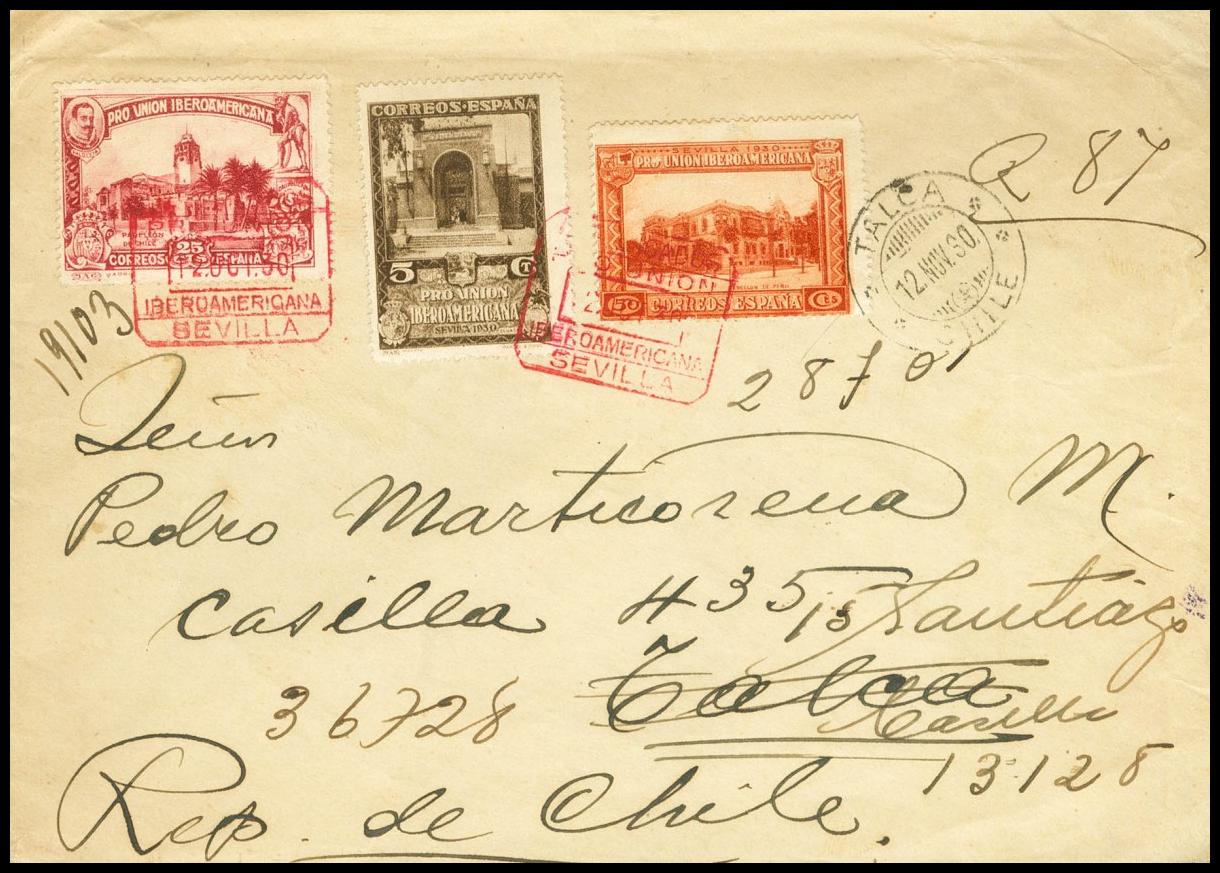 PRO UNION IBEROAMERICANA
PABELLON
DE CHILE
25
CORREOS ESPAÑA
12.OCT.30
IBEROAMERICANA
SEVILLA
CORREOS·ESPAÑA
5 CTS
PRO UNION
IBEROAMERICANA
SEVILLA 1930
SEVILLA 1930
PRO UNION IBEROAMERICANA
50 CORREOS ESPAÑA Cts
UNION
IBEROAMERICANA
SEVILLA
TALCA
12.NOV.30.
CHILE
R 87
19103
2870
Señor
Pedro Marticorena M.
Casilla 435 Santiago
Talca
Casilla
36728
13128
Rep. de Chile.